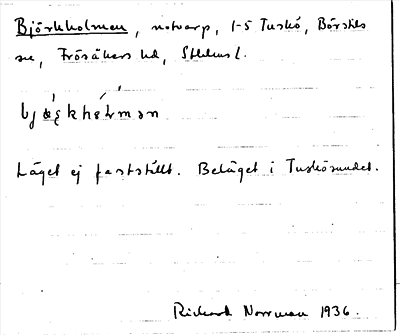 Björkholmen, notvarp, 1-5 Tuskö, Börstils
sn, Frösåkers hd, Sthlms l.
Läget ej fastställt. Beläget i Tuskösundet.
Richard Norrman 1936.